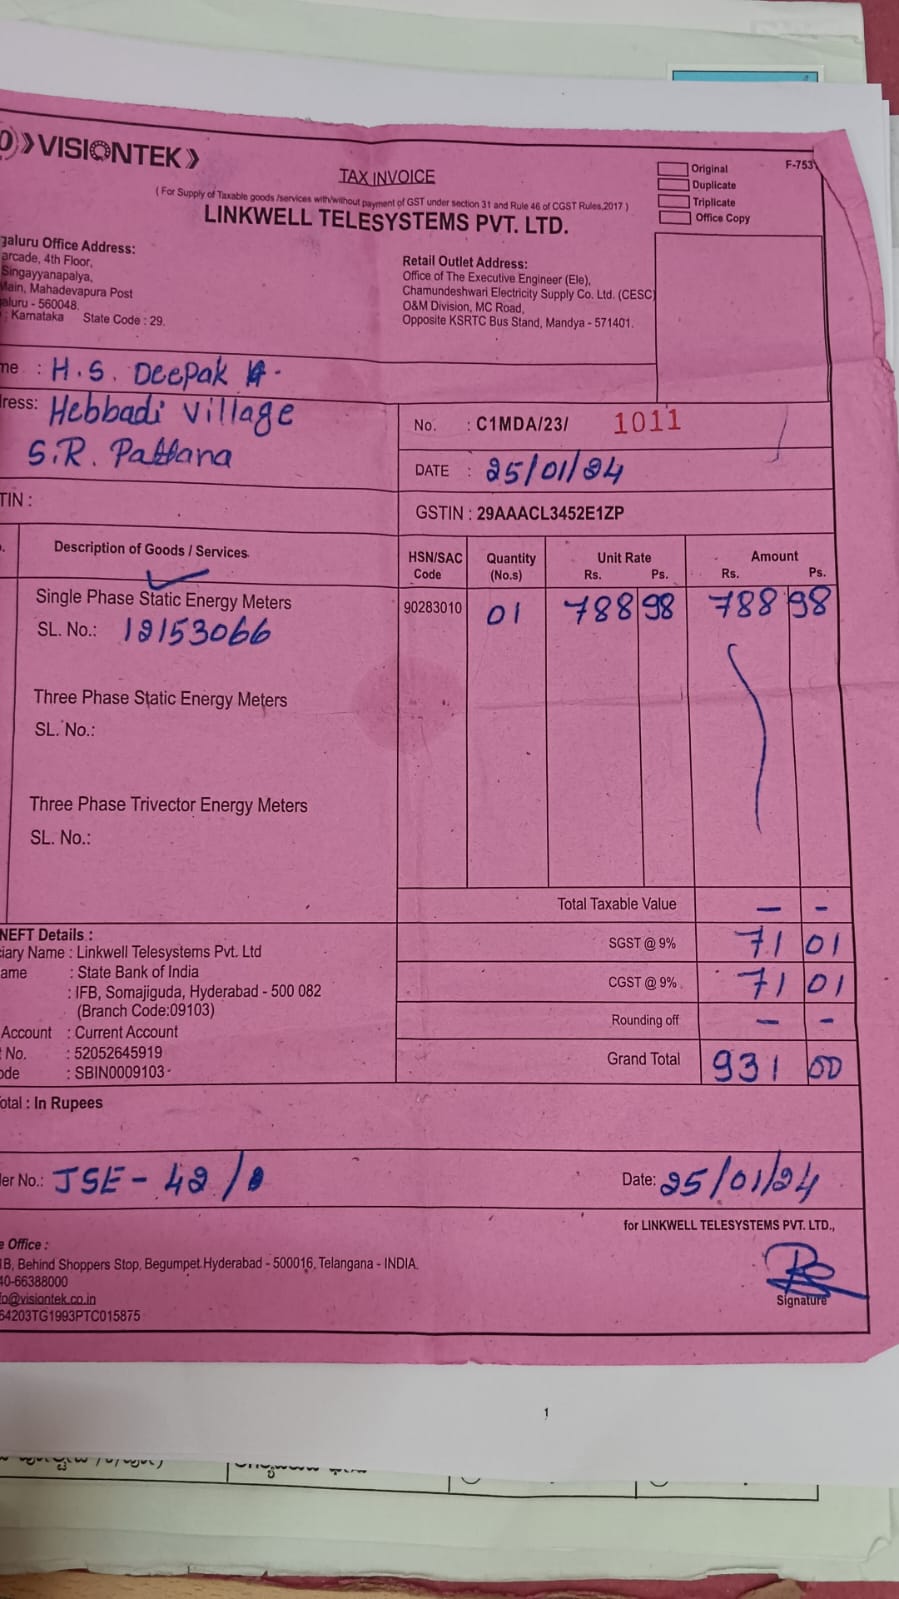 VISIONTEK
TAX INVOICE
(For Supply of Taxable goods /services with/without payment of GST under section 31 and Rule 46 of CGST Rules,2017)
LINKWELL TELESYSTEMS PVT. LTD.
Original
Duplicate
Triplicate
Office Copy
F-753
galuru Office Address:
arcade, 4th Floor,
Singayyanapalya,
Main, Mahadevapura Post
aluru - 560048.
: Karnataka State Code : 29.
Retail Outlet Address:
Office of The Executive Engineer (Ele),
Chamundeshwari Electricity Supply Co. Ltd. (CESC)
O&M Division, MC Road,
Opposite KSRTC Bus Stand, Mandya - 571401.
me : H.S. Deepak
ress: Hebbadi Village
S.R. Pattana
No. : C1MDA/23/ 1011
DATE : 25/01/24
TIN :
GSTIN : 29AAACL3452E1ZP
Description of Goods / Services
HSN/SAC Code
Quantity (No.s)
Unit Rate Rs. Ps.
Amount Rs. Ps.
Single Phase Static Energy Meters 90283010 01 788 98 788 98
SL. No.: 12153066
Three Phase Static Energy Meters
SL. No.:
Three Phase Trivector Energy Meters
SL. No.:
Total Taxable Value — -
SGST @ 9% 71 01
CGST @ 9% 71 01
Rounding off — -
Grand Total 931 00
NEFT Details :
iary Name : Linkwell Telesystems Pvt. Ltd
ame : State Bank of India
: IFB, Somajiguda, Hyderabad - 500 082
(Branch Code:09103)
Account : Current Account
No. : 52052645919
ode : SBIN0009103
otal : In Rupees
er No.: JSE - 42/
Date: 25/01/24
for LINKWELL TELESYSTEMS PVT. LTD.,
e Office :
1B, Behind Shoppers Stop, Begumpet Hyderabad - 500016, Telangana - INDIA.
40-66388000
fo@visiontek.co.in
64203TG1993PTC015875
Signature
1